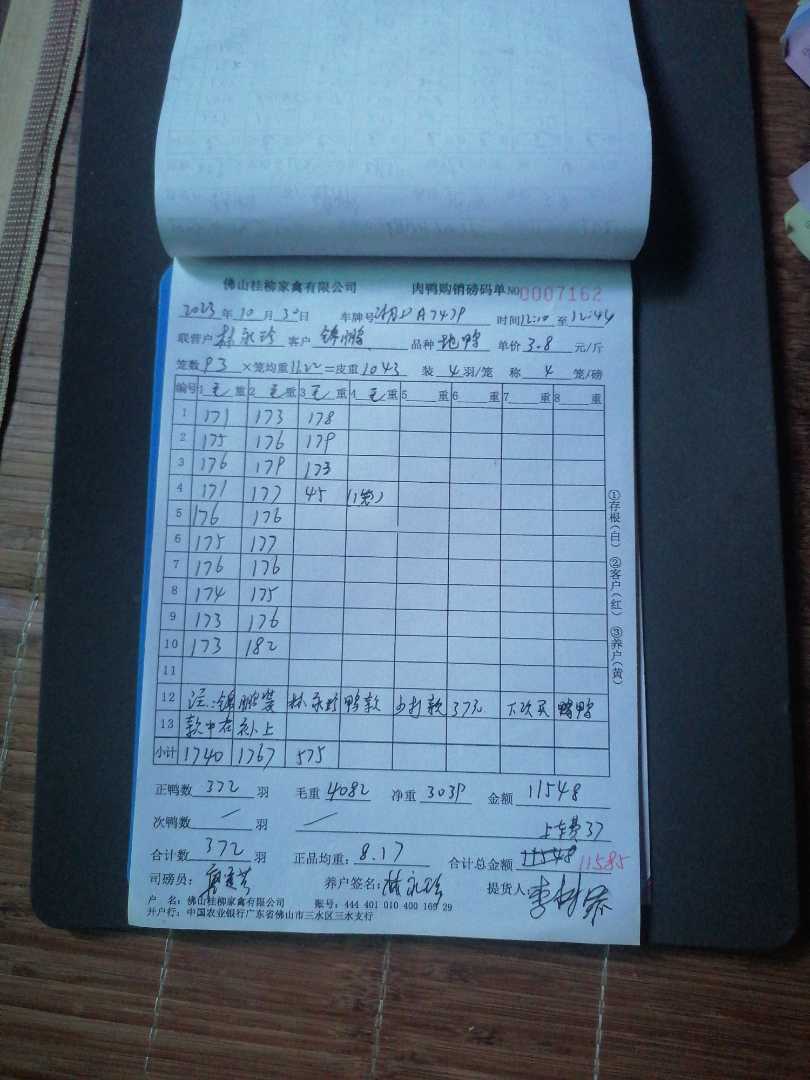 佛山桂柳家禽有限公司 肉鸭购销磅码单 NO 0007162
2023年10月30日 车牌号 湘DA7479 时间12:10至12:44
联营户 林永珍 客户 锦鹏 品种 地鸭 单价3.8元/斤
笼数93×笼均重11.22=皮重1043 装4羽/笼 称4笼/磅
编号 1毛重 2毛重 3毛重 4毛重 5重 6重 7重 8重
1 171 173 178
2 175 176 179
3 176 179 173
4 171 177 45 (1笼)
5 176 176
6 175 177
7 176 176
8 174 175
9 173 176
10 173 182
11
12 注:锦鹏装林永珍鸭款少打款37元 下次买鸭鸭
13 款中在补上
小计 1740 1767 575
正鸭数372羽 毛重4082 净重3039 金额11548
次鸭数/羽 / 上车费37
合计数372羽 正品均重:8.17 合计总金额 11548 11585
司磅员: 养户签名:林永珍 提货人:李
户 名:佛山桂柳家禽有限公司 账号:444 401 010 400 169 29
开户行:中国农业银行广东省佛山市三水区三水支行
①存根(白) ②客户(红) ③养户(黄)